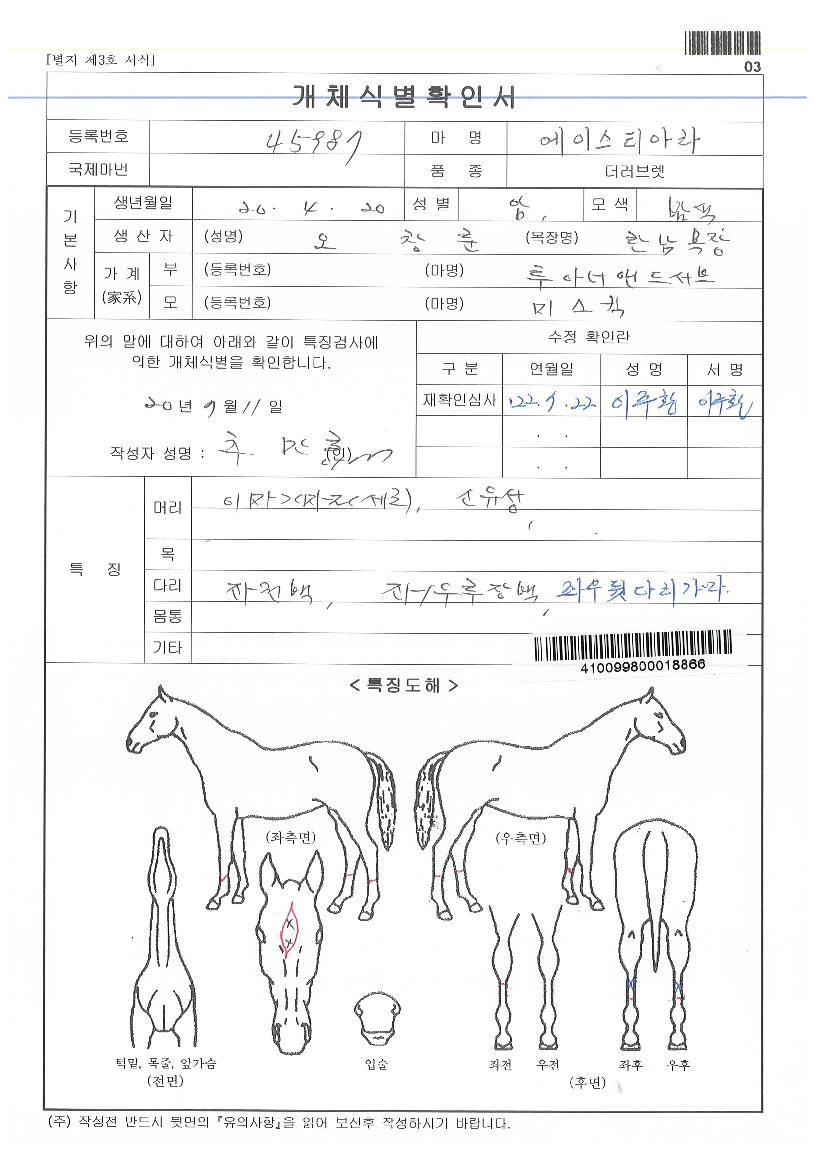 [별지 제3호 서식]
03
개체식별확인서
등록번호 45987 마 명 에이스티아라
국제마번 품 종 더러브렛
기본사항
생년월일 20. 4. 20 성별 암 모색 밤색
생 산 자 (성명) 오 창 훈 (목장명) 한남목장
가 계 (家系) 부 (등록번호) (마명) 투아너앤드서브
모 (등록번호) (마명) 미소퀵
위의 말에 대하여 아래와 같이 특징검사에
의한 개체식별을 확인합니다.
20년 9월 11일
작성자 성명 : (인)
수정 확인란
구 분 연월일 성 명 서 명
재확인심사 '22. 9. 22 이주환 이주환
. .
. .
특 징
머리
목
다리 좌우뒷다리가마.
몸통
기타
410099800018866
< 특징도해 >
(좌측면) (우측면)
턱밑, 목줄, 앞가슴
(전면)
입술
좌전 우전 좌후 우후
(후면)
(주) 작성전 반드시 뒷면의 『유의사항』을 읽어 보신후 작성하시기 바랍니다.